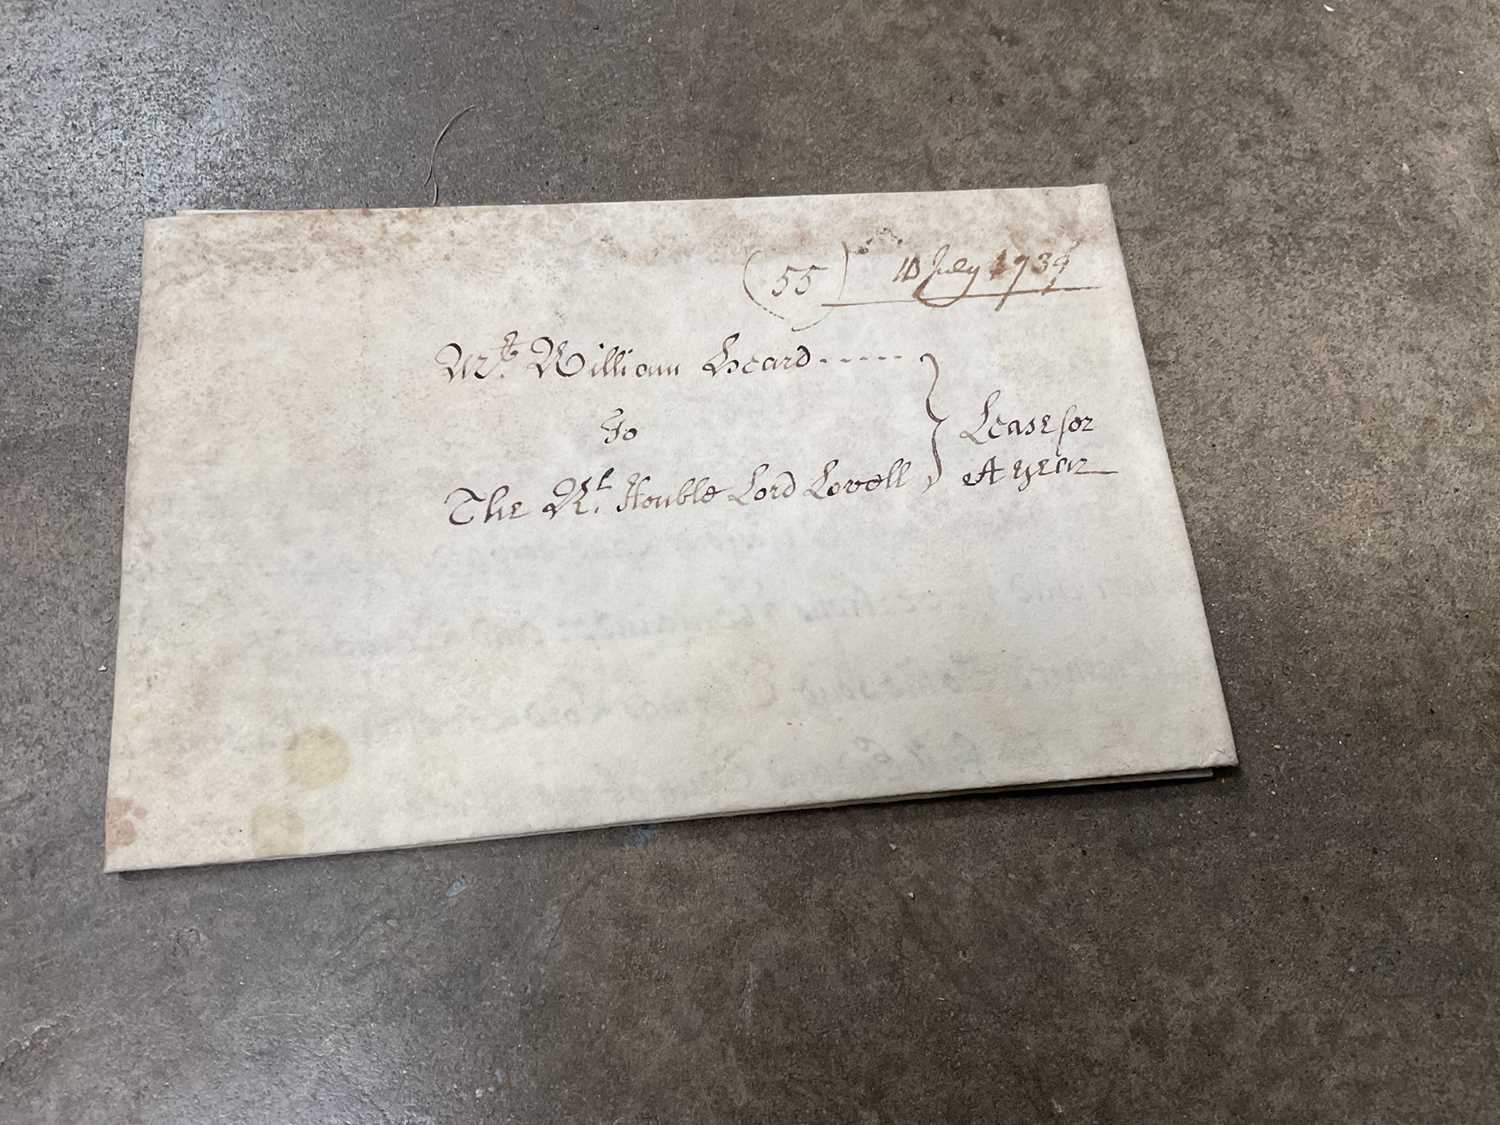 (55) July 1739
Mr. William Heard
To
The Rt. Honble Lord Lovell
Lease for
A year